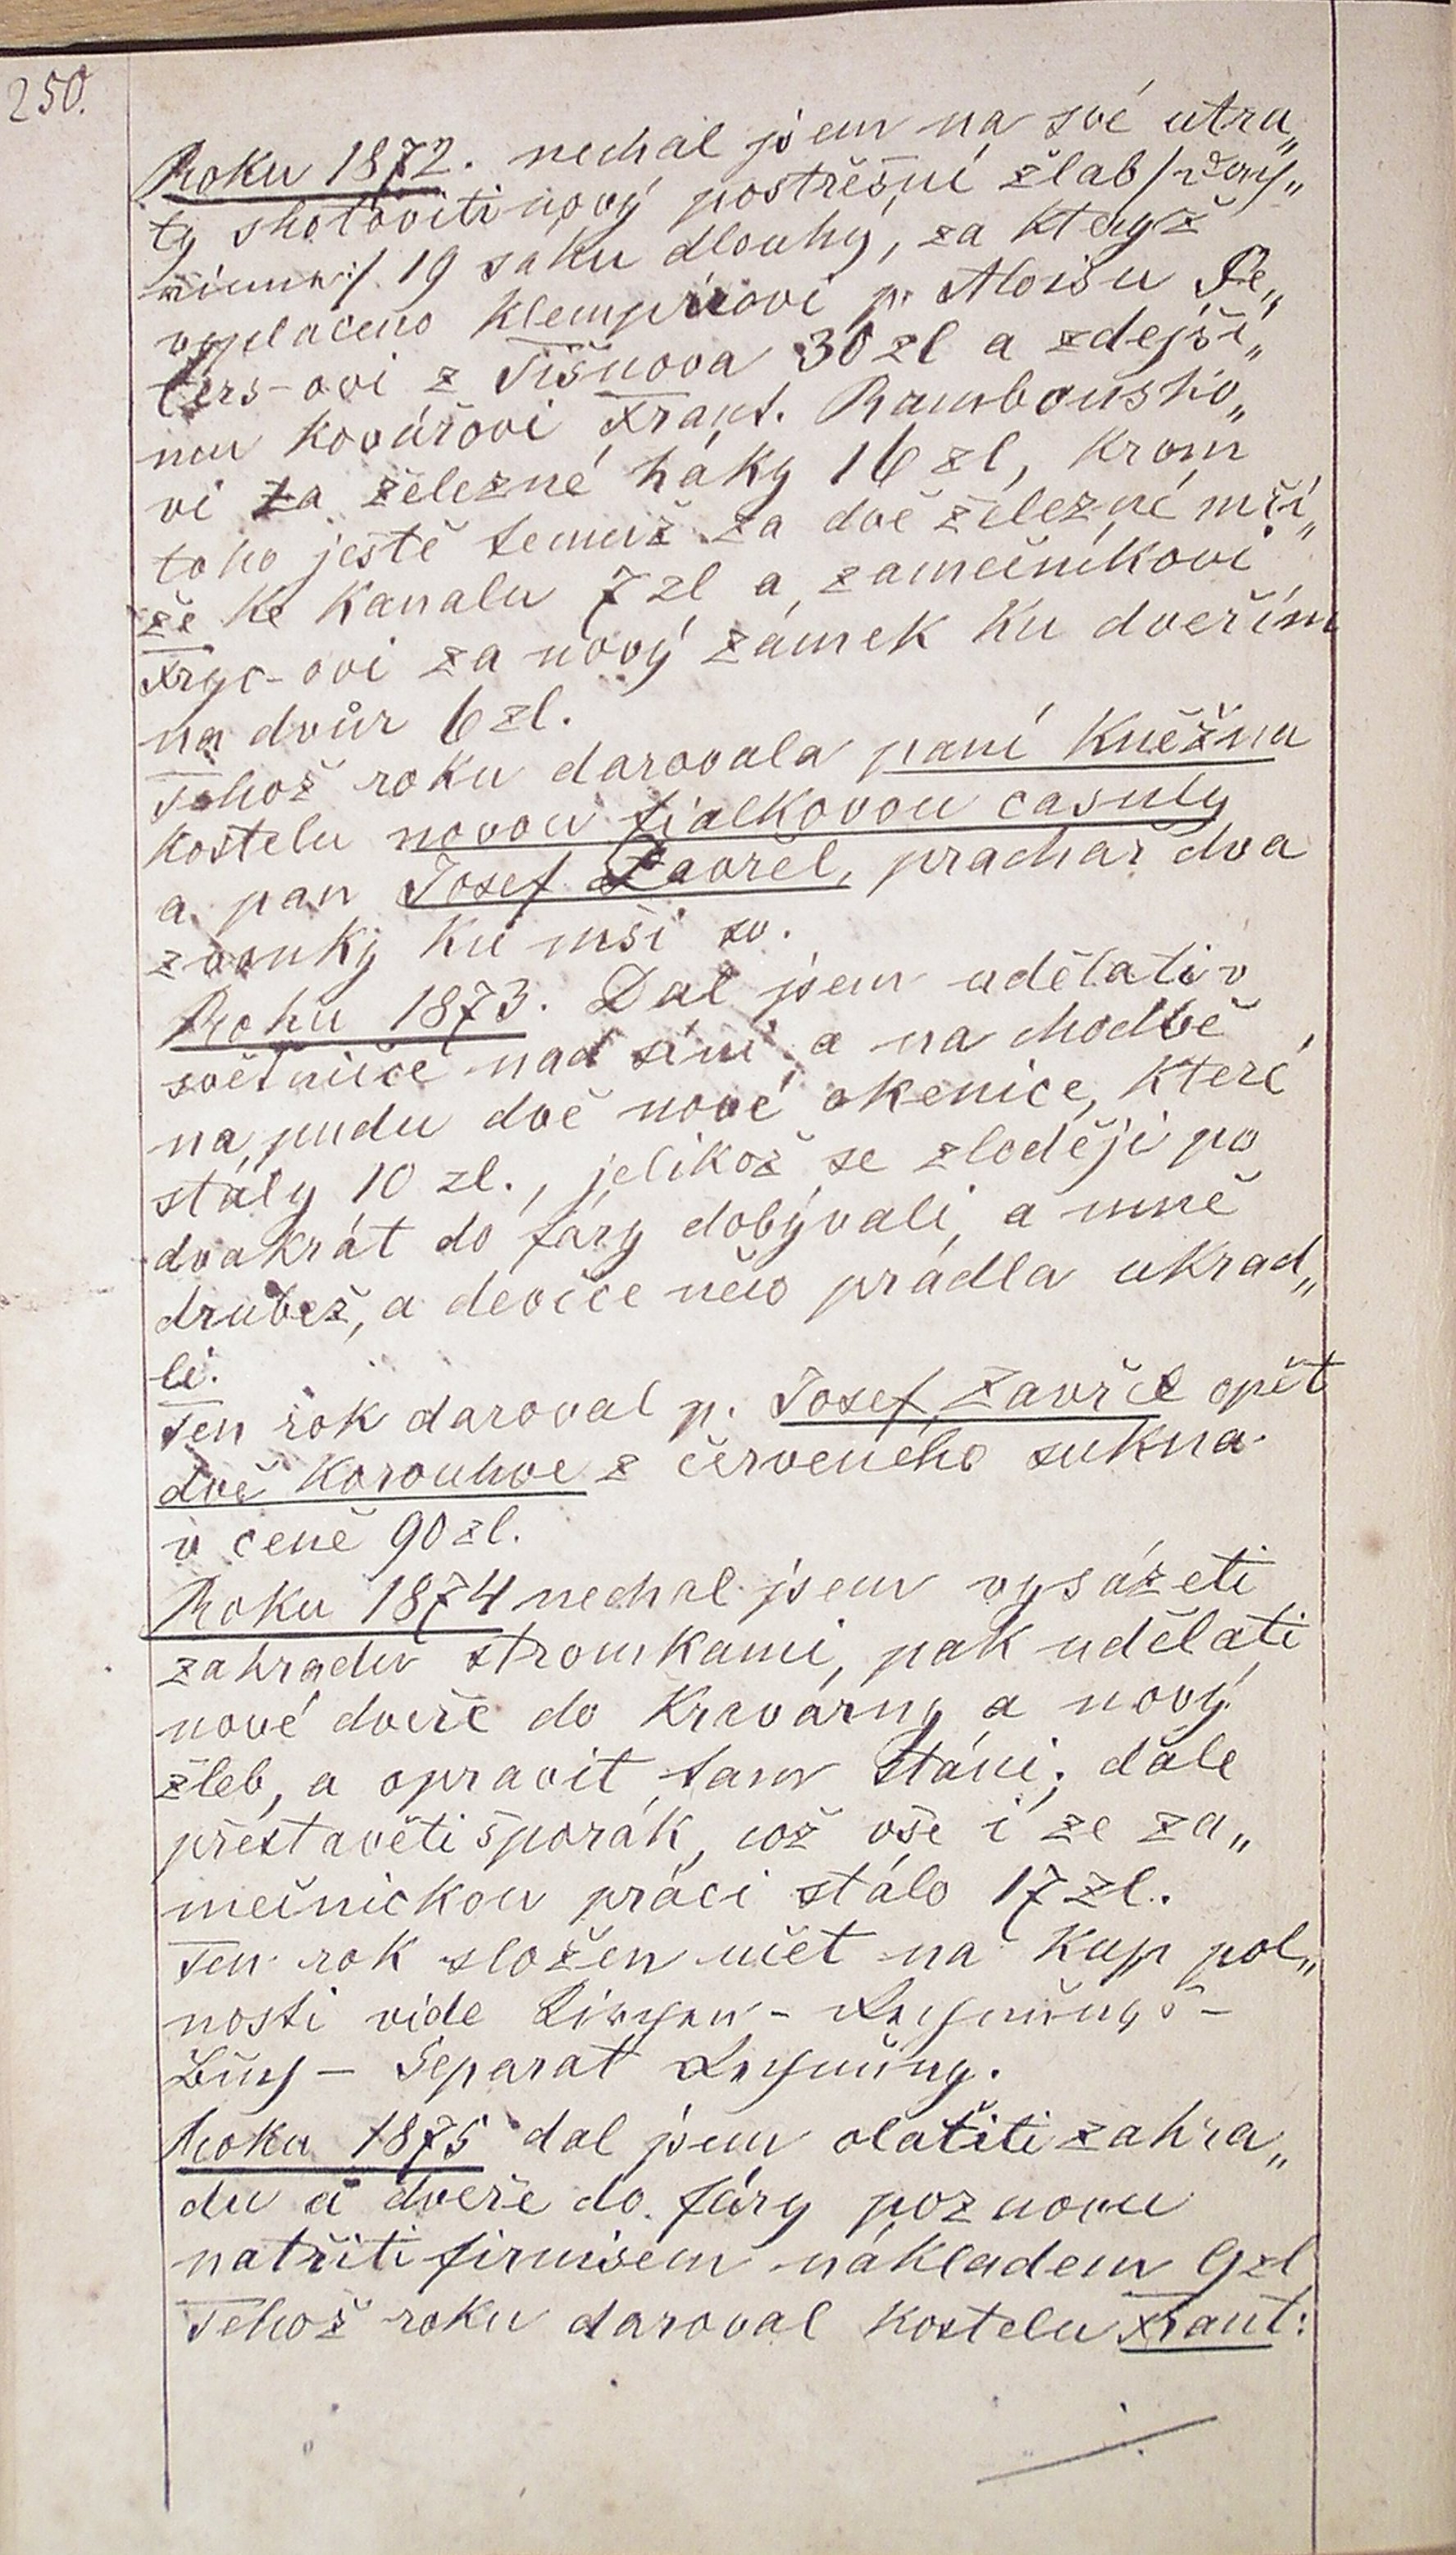 250.
Roku 1872. nechal jsem na své útra„
ty shotoviti nový postřešní žlab /: Dach„
rinne :/ 19 sáhu dlouhý, za kterýž
vyplaceno klempířovi p. Aloisu Pe„
ters-ovi z Tišnova 30 zl a zdejší„
mu kovářovi Frant. Rambousko„
vi za železné háky 16 zl, krom
toho ještě temuž za dvě železné mří„
že ke kanalu 7 zl a zámečníkovi
Fryc-ovi za nový zámek ku dveřím
na dvůr 6 zl.
Tehož roku darovala paní Kněžna
kostelu novou fialkovou casuly
a pan Josef Zavřel, prachař dva
zvonky ku mši sv.
Roku 1873. Dal jsem udělati v
světnice nad síní a na chodbě
na pudu dvě nové okenice, které
stály 10 zl., jelikož se zloději po
dvakrát do fary dobývali, a mně
drubež, a děvčce něco prádla ukrad„
li.
Ten rok daroval p. Josef Zavřel opět
dvě korouhve z červeného sukna
v ceně 90 zl.
Roku 1874 nechal jsem vysázeti
zahradu stromkami, pak udělati
nové dveře do kravárny a nový
žleb, a opravit tam stání; dále
přestavěti šporák, což vše i ze zá„
mečnickou práci stálo 17 zl.
Ten rok složen účet na kup pol„
nosti vide Kirchen-Rechnungs-
Buch - Separat Rechnung.
Roku 1875 dal jsem olatiti zahra„
du a dveře do fary poznovu
natříti firnisem nákladem 9 zl
Tehož roku daroval kostelu Frant: